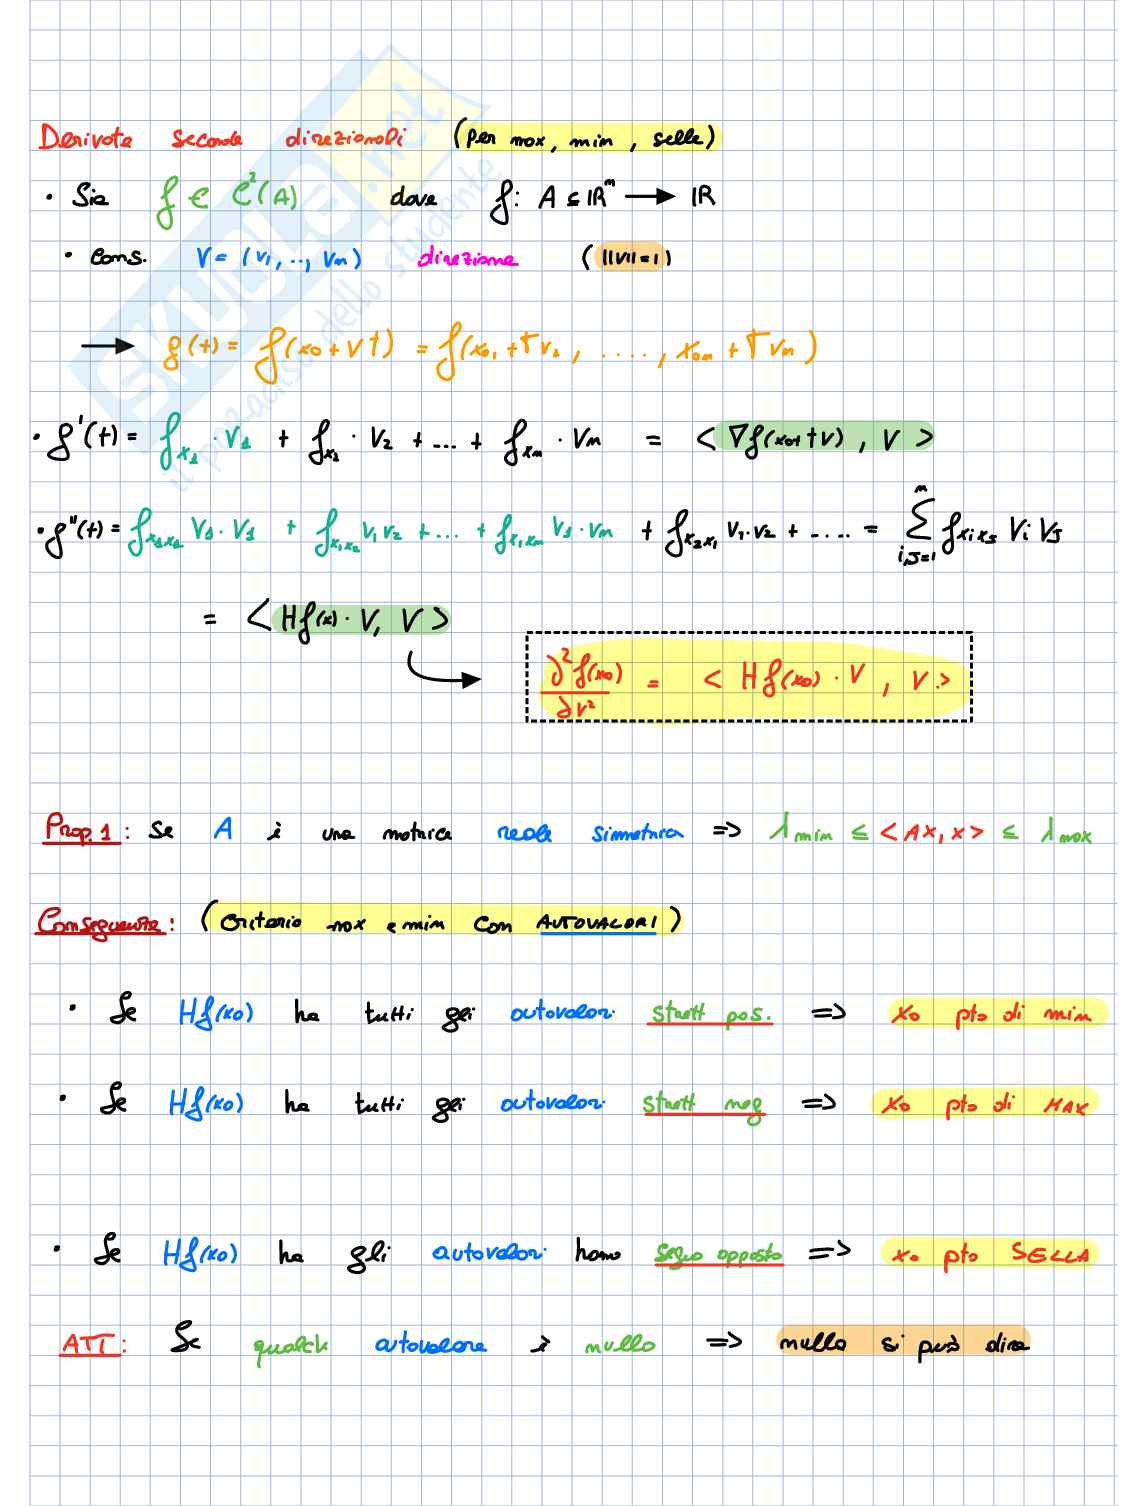 Derivate seconde direzionali (per max, min, selle)
• Sia f ∈ C²(A) dove f: A ⊆ ℝⁿ → ℝ
• Cons. V = (v₁, .., vₙ) direzione (||V|| = 1)
→ g(t) = f(x₀ + Vt) = f(x₀₁ + tv₁, ...., x₀ₙ + tvₙ)
• g'(t) = f_x₁ · V₁ + f_x₂ · V₂ + ... + f_xₙ · Vₙ = < ∇f(x₀+tv), V >
• g''(t) = f_x₁x₁ V₁ · V₁ + f_x₁x₂ V₁V₂ + ... + f_x₁xₙ V₁ · Vₙ + f_x₂x₁ V₁ · V₂ + .... = Σ_{i,j=1}^{n} f_xixj Vi Vj
= < Hf(x) · V, V >
∂²f(x₀)/∂v² = < Hf(x₀) · V, V >
Prop. 1: Se A è una matrice reale simmetrica => λmin ≤ <Ax, x> ≤ λmax
Conseguente: (Criterio max e min con AUTOVALORI)
• Se Hf(x₀) ha tutti gli autovalori strett pos. => x₀ pto di min
• Se Hf(x₀) ha tutti gli autovalori strett neg => x₀ pto di MAX
• Se Hf(x₀) ha gli autovalori hanno segno opposto => x₀ pto SELLA
ATT: Se qualche autovalore è nullo => nulla si può dire
SKUOLA.net
il paradiso dello studente